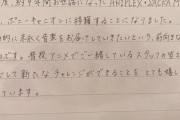 度、約9年間お世話になったANIPLEX・SACRA M
、ポニーキャニオンに移籍することになりました。
的に末永く音楽をお届けしていきたいという、前向きな
です。普段アニメでご一緒しているスタッフの皆
して新たなチャレンジができることをとても嬉し
ています。